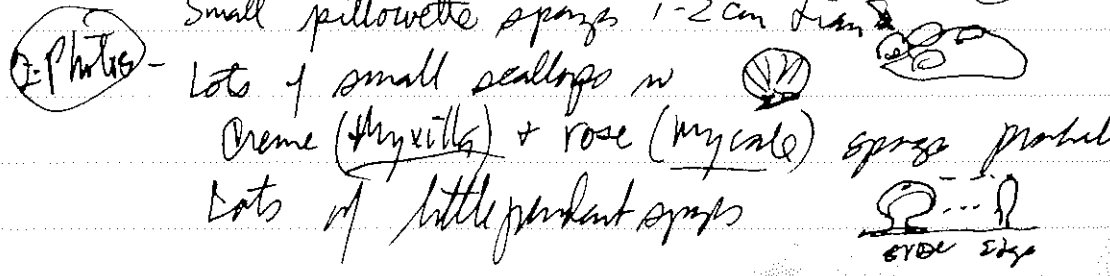 Small pillowette sponges 1-2 cm diam
2-Photos - Lots of small scallops w
Creme (Myxilla) + rose (Mycale) sponge
Lots of little pendant sponges
edge